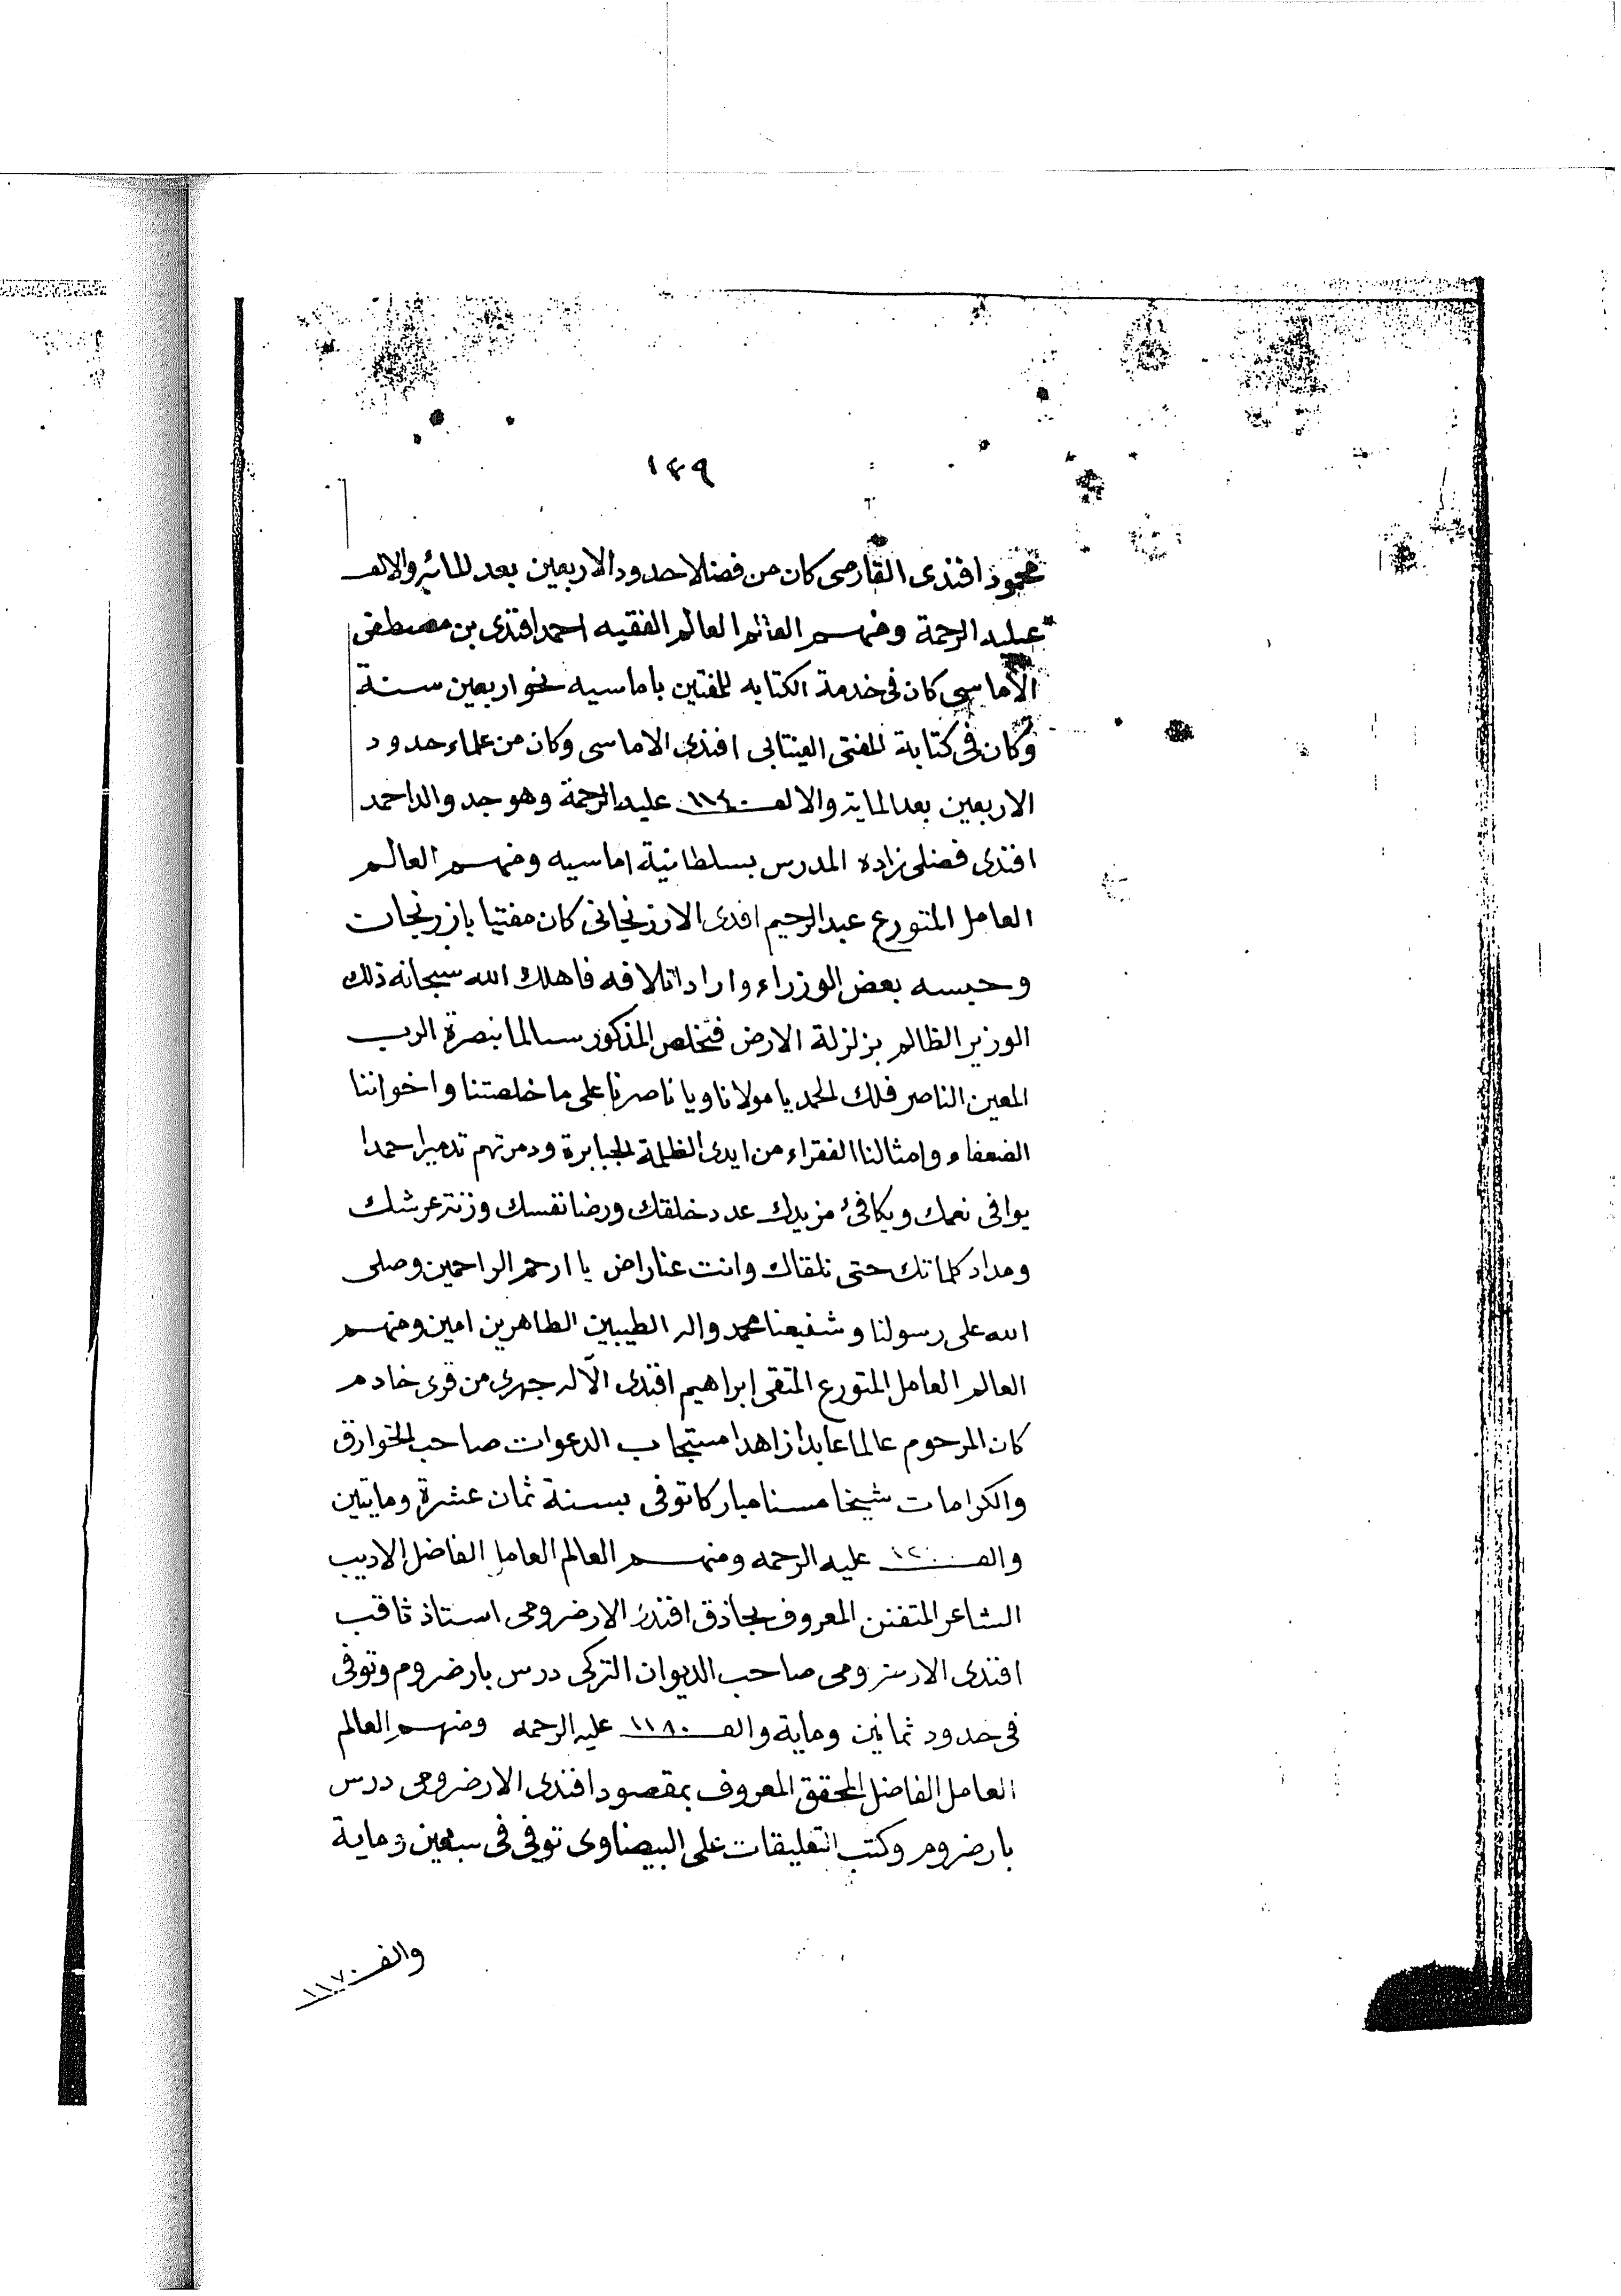 ١٤٩
محمود افندى القارصى كان من فضلا حدود الاربعين بعد المائة والالف
عليه الرحمة ومنهم العالم العالم الفقيه احمد افندى بن مصطفى
الاماسى كان فى خدمة الكتابه للمفتين باماسيه نحو اربعين سنة
وكان فى كتابة المفتى العينتابى افندى الاماسى وكان من علماء حدود
الاربعين بعد الماية والالف ١١٤٠ عليه الرحمة وهو جد والد احمد
افندى فضلى زاده المدرس بسلطانية اماسيه ومنهم العالم
العامل المتورع عبد الرحيم افندى الارزنجانى كان مفتيا بازرنجان
وحبسه بعض الوزراء واراد اتلافه فاهلك الله سبحانه ذلك
الوزير الظالم بزلزلة الارض فتخلص المذكور سالما بنصرة الرب
المعين الناصر فلك الحمد يا مولانا ويا ناصرنا على ما خلصتنا واخواننا
الضعفاء وامثالنا الفقراء من ايدى الظلمة الجبابرة ودمرتهم تدميرا حمدا
يوافى نعمك ويكافئ مزيدك عدد خلقك ورضا نفسك وزنة عرشك
ومداد كلماتك حتى نلقاك وانت عنا راض يا ارحم الراحمين وصلى
الله على رسولنا وشفيعنا محمد واله الطيبين الطاهرين امين ومنهم
العالم العامل المتورع المتقى ابراهيم افندى الآله جهرى من قرى خادم
كان المرحوم عالما عابدا زاهدا مستجاب الدعوات صاحب الخوارق
والكرامات شيخا مسنا مباركا توفى بسنة ثمان عشرة ومايتين
والف عليه الرحمه ومنهم العالم العامل الفاضل الاديب
الشاعر المتفنن المعروف بحاذق افندى الارضرومى استاذ ثاقب
افندى الارضرومى صاحب الديوان التركى درس بارضروم وتوفى
فى حدود ثمانين وماية والف ١١٨٠ عليه الرحمه ومنهم العالم
العامل الفاضل المحقق المعروف بمقصود افندى الارضرومى درس
بارضروم وكتب التعليقات على البيضاوى توفى فى سبعين وماية
والف ١١٧٠